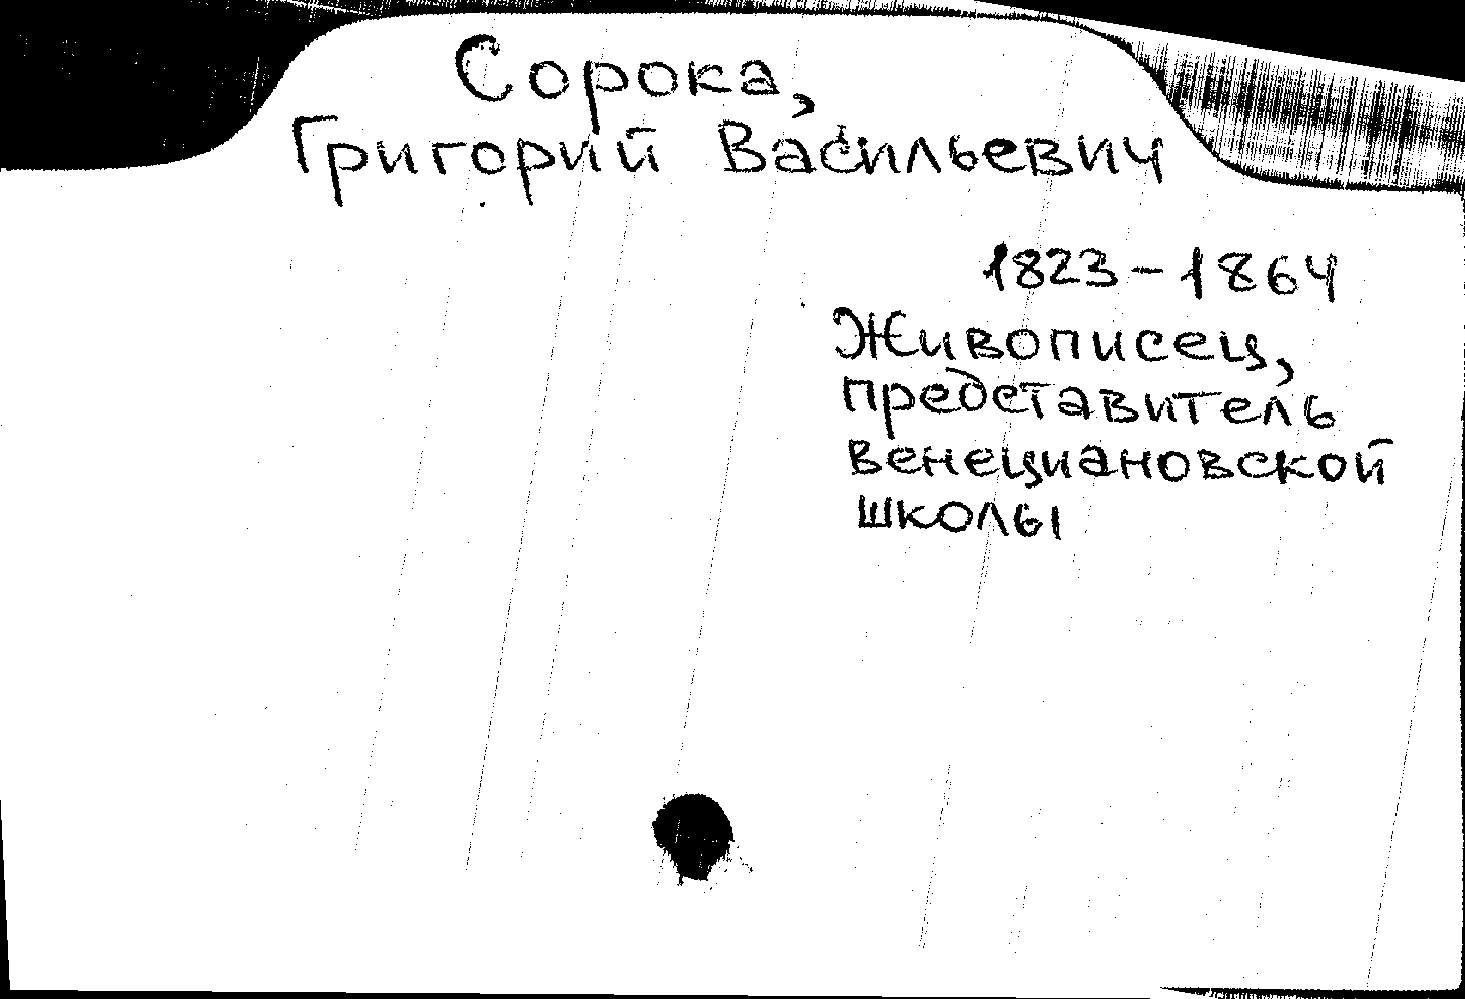 Сорока,
Григорий Васильевич
1823-1864
Живописец,
представитель
венециановской
школы